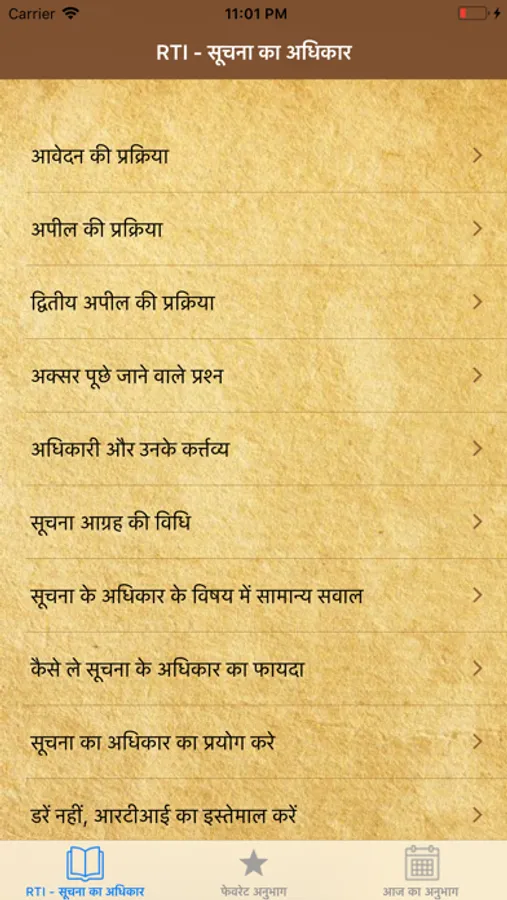 Carrier 11:01 PM
RTI - सूचना का अधिकार
आवेदन की प्रक्रिया
अपील की प्रक्रिया
द्वितीय अपील की प्रक्रिया
अक्सर पूछे जाने वाले प्रश्न
अधिकारी और उनके कर्त्तव्य
सूचना आग्रह की विधि
सूचना के अधिकार के विषय में सामान्य सवाल
कैसे ले सूचना के अधिकार का फायदा
सूचना का अधिकार का प्रयोग करे
डरें नहीं, आरटीआई का इस्तेमाल करें
RTI - सूचना का अधिकार फेवरेट अनुभाग आज का अनुभाग